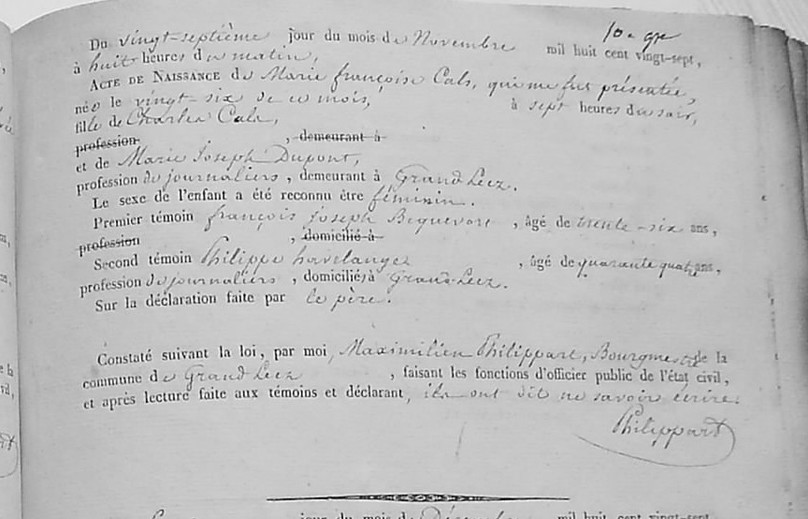 Du vingt-septième jour du mois de Novembre mil huit cent vingt-sept,
à huit heures du matin,
ACTE DE NAISSANCE de Marie françoise Cals, qui me fut présentée,
née le vingt-six de ce mois, à sept heures du soir,
fille de Charles Cals,
profession , demeurant à
et de Marie Joseph Dupont,
profession de journaliers, demeurant à Grand-Leez.
Le sexe de l'enfant a été reconnu être féminin.
Premier témoin françois joseph Bequevort, âgé de trente-six ans,
profession , domicilié à
Second témoin Philippe havelange, âgé de quarante quatre ans,
profession de journaliers, domicilié à Grand-Leez.
Sur la déclaration faite par le père.
Constaté suivant la loi, par moi, Maximilien Philippart, Bourgmestre de la
commune de Grand Leez, faisant les fonctions d'officier public de l'état civil,
et après lecture faite aux témoins et déclarant, ils ont dit ne savoir écrire.
Philippart
jour du mois de Décembre mil huit cent vingt-sept